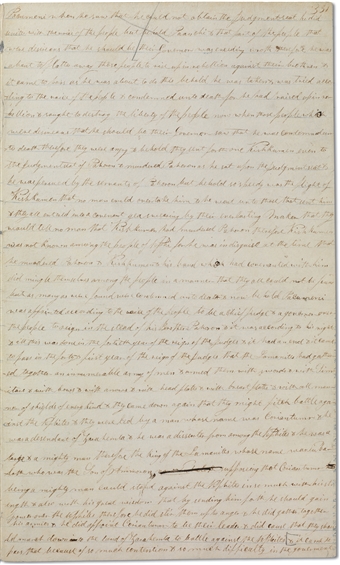 351
Pacumeni when he saw that he could not obtain the Judgement seat he did
unite with the voice of the people but behold Paanchi & that part of the people that
were desirous that he should be their Governor was exceding wroth therefore he was
about to flatter away those people to rise up in rebelion against their brethren &
it came to pass as he was about to do this behold he was taken & was tried accor
ding to the voice of the people & condemned unto death for he had raised up in re
bellion & sought to destroy the liberty of the people now when those people which
were desireous that he should be their Governor saw that he was condemned un
to death therefore they were angry & behold they sent forth one Kishkumen even to
the judgement seat of Pahoran & murdered Pahoran as he sat upon the judgement seat &
he was pursued by the servants of Pahoran but behold so speedy was the flight of
Kishkumen that no man could overtake him & he went unto those that sent him
& they all entered into a covenant yea swearing by their everlasting maker that they
would tell no man that Kishkumen had murdered Pahoran therefore Kishkumen
was not known among the people of Nephi for he was in disguise at the time that
he murdered Pahoran & Kishkumen & his band which had covenanted with him
did mingle themselves among the people in a manner that they all could not be found
but as many as were found was condemned unto death & now behold Pacumeni
was appointed according to the voice of the people to be a chief judge & a governor over
the people to reign in the stead of his brother Pahoran & it was according to his right
& all this was done in the fortieth year of the reign of the judges & it had an end & it came
to pass in the forty & first year of the reign of the judges that the Lamanites had gather
ed together an innumerable army of men & armed them with swords & with Sim
iters & with bows & with arrows & with head plates & with breast plates & with all man
ner of shields of every kind & they came down again that they might pitch battle again
st the Nephites & they were led by a man whose name was Coriantumr & he
was a desendant of Zarahemla & he was a dissenter from among the Nephites & he was a
large & a mighty man therefore the king of the Lamanites whose name was Tubal
oth who was the Son of Ammoron supposeing that Coriantumr
being a mighty man could stand against the Nephites with his strength
& also with his great wisdom that by sending him forth he should gain
power over the Nephites therefore he did stir them up to anger & he did gather together
his armies & he did appoint Coriantumr to be their leader & did cause that they should
march down to the land of Zarahemla to battle against the Nephites & it came to
pass that because of so much contention & so much difficulty in the government